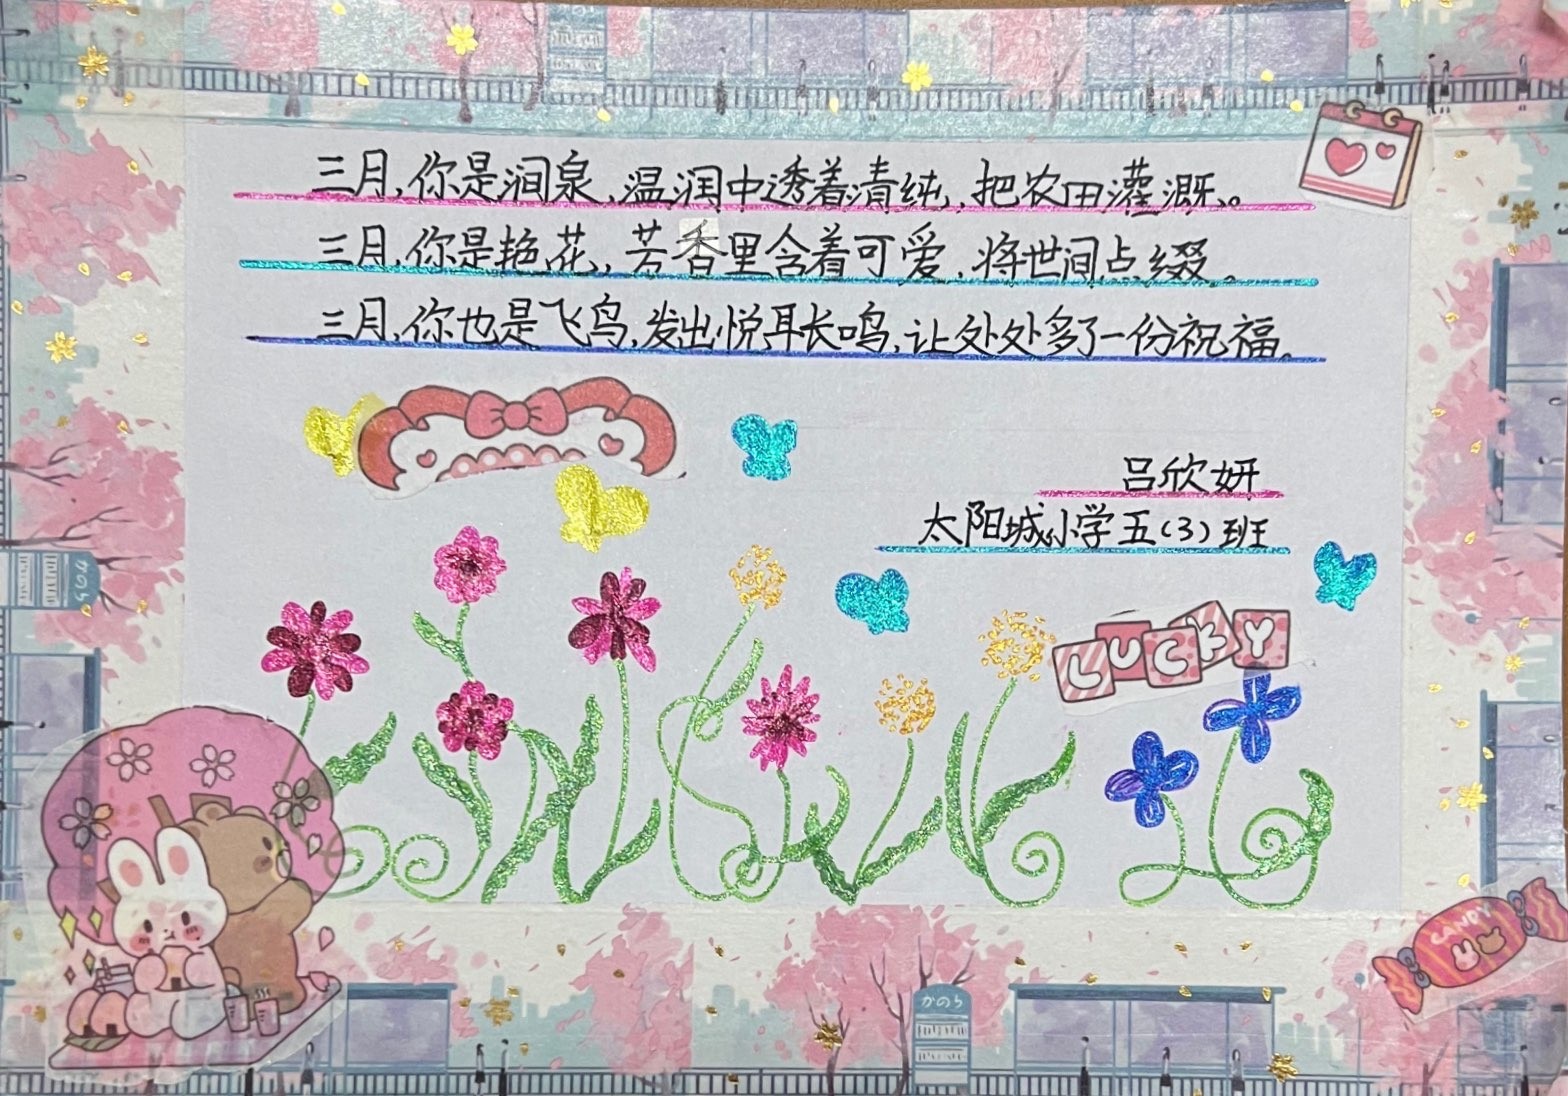 三月，你是涧泉，温润中透着清纯，把农田灌溉。
三月，你是艳花，芳香里含着可爱，将世间点缀。
三月，你也是飞鸟，发出悦耳长鸣，让处处多了一份祝福。
吕欣妍
太阳城小学五（3）班
LUCKY
かのら